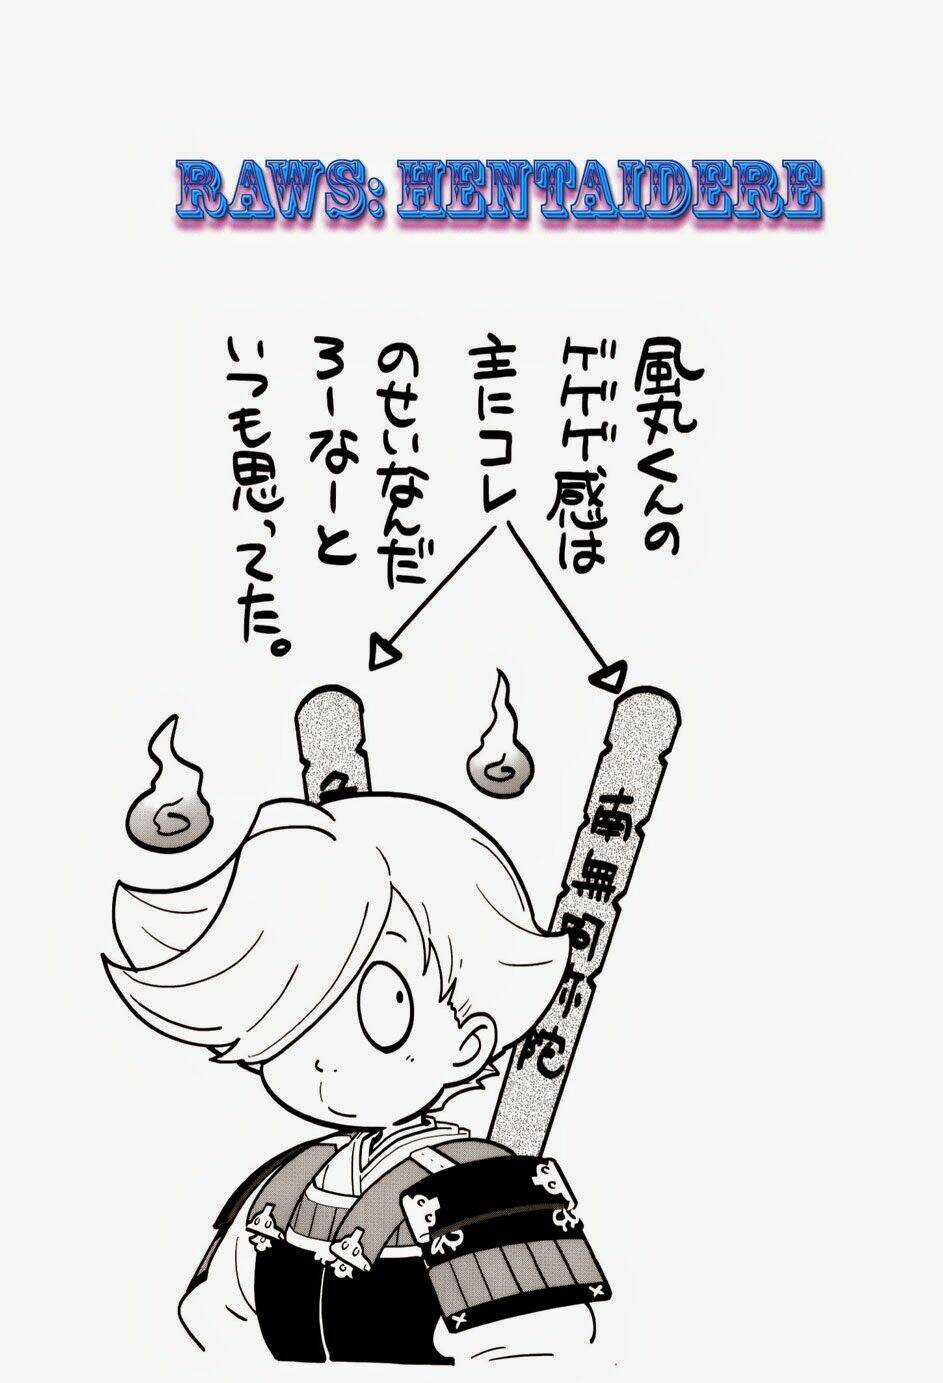 RAWS: HENTAIDERE
風丸くんの
ゲゲゲ感は
主にコレ
のせいなんだ
ろーなーと
いつも思ってた。
南無阿弥陀